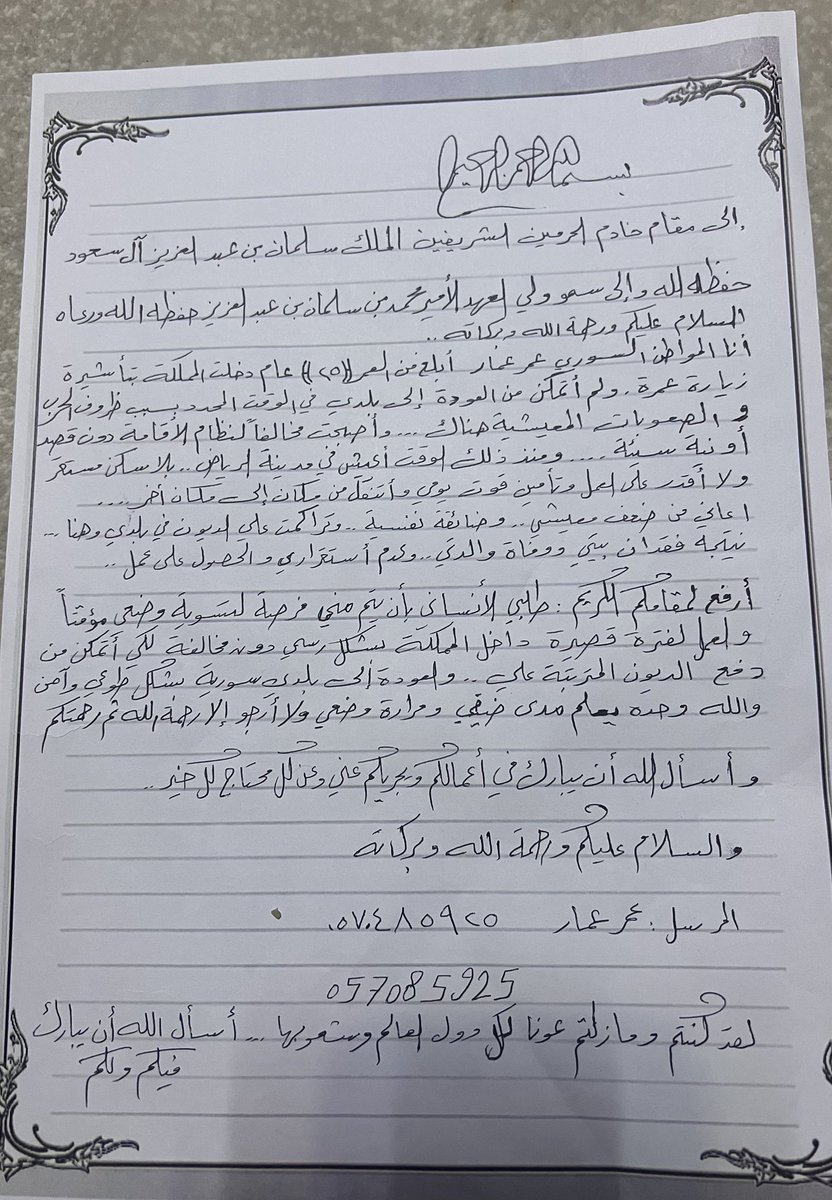 بسم الله الرحمن الرحيم
إلى مقام خادم الحرمين الشريفين الملك سلمان بن عبد العزيز آل سعود
حفظه الله وإلى سمو ولي العهد الأمير محمد بن سلمان بن عبد العزيز حفظه الله ورعاه
السلام عليكم ورحمة الله وبركاته ..
أنا المواطن السوري عمر عمار أبلغ من العمر ((٢٥)) عام دخلت المملكة بتأشيرة
زيارة عمرة . ولم أتمكن من العودة إلى بلدي في الوقت المحدد بسبب ظروف الحرب
و الصعوبات المعيشية هناك .... وأصبحت مخالفاً لنظام الأقامة دون قصد
أو نية سيئة .... ومنذ ذلك الوقت أعيش في مدينة الرياض .. بلا سكن مستقر
ولا أقدر على العمل وتأمين قوت يومي وأتنقل من مكان إلى مكان أخر ....
اعاني من ضعف معيشي .. وضائقة نفسية .. وتراكمت علي الديون في بلدي وهنا ...
نتيجة فقدان بيتي ووفاة والدي .. وعدم أستقراري والحصول على عمل ..
أرفع لمقامكم الكريم : طلبي الأنساني بأن يتم مني فرصة لتسوية وضعي مؤقتاً
والعمل لفترة قصيرة داخل المملكة بشكل رسمي دون مخالفة لكي أتمكن من
دفع الديون المترتبة علي .. والعودة إلى بلدي سورية بشكل طوعي وآمن
والله وحده يعلم مدى ضيقي ومرارة وضعي ولا أرجو إلا رحمة الله ثم رحمتكم
وأسأل الله أن يبارك في أعمالكم ويجزيكم عني وعن كل محتاج كل خير ..
والسلام عليكم ورحمة الله وبركاته
المرسل : عمر عمار ٠٥٧٠٤٨٥٩٢٥
057085925
لقد كنتم ومازلتم عونا لكل دول العالم وشعوبها ... أسأل الله أن يبارك
فيكم ولكم